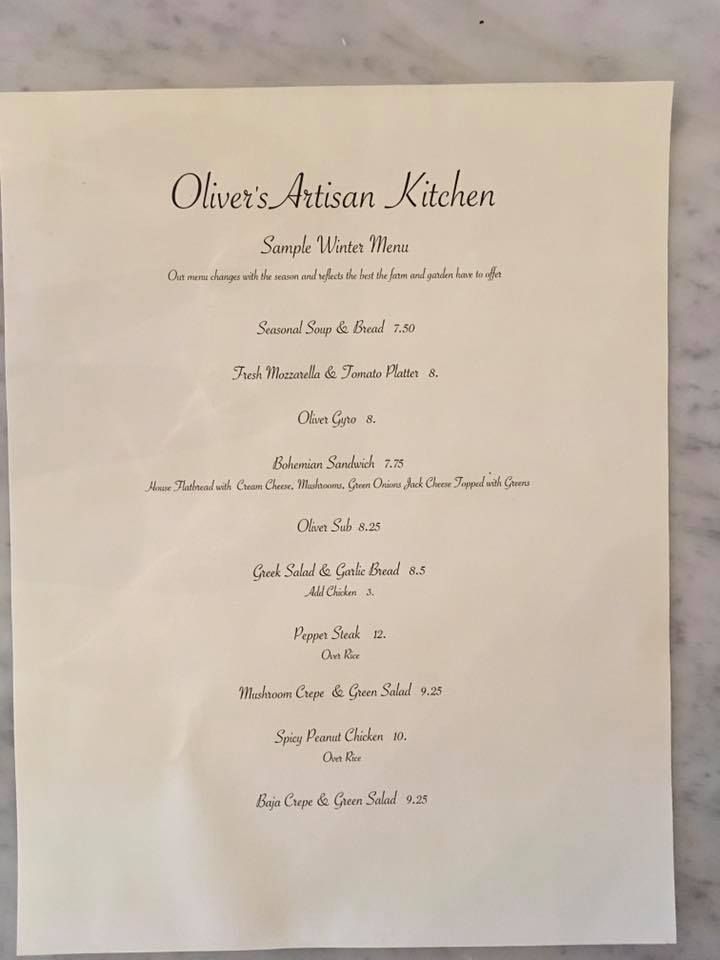 Oliver's Artisan Kitchen
Sample Winter Menu
Our menu changes with the season and reflects the best the farm and garden have to offer
Seasonal Soup & Bread 7.50
Fresh Mozzarella & Tomato Platter 8.
Oliver Gyro 8.
Bohemian Sandwich 7.75
House Flatbread with Cream Cheese, Mushrooms, Green Onions Jack Cheese Topped with Greens
Oliver Sub 8.25
Greek Salad & Garlic Bread 8.5
Add Chicken 3.
Pepper Steak 12.
Over Rice
Mushroom Crepe & Green Salad 9.25
Spicy Peanut Chicken 10.
Over Rice
Baja Crepe & Green Salad 9.25